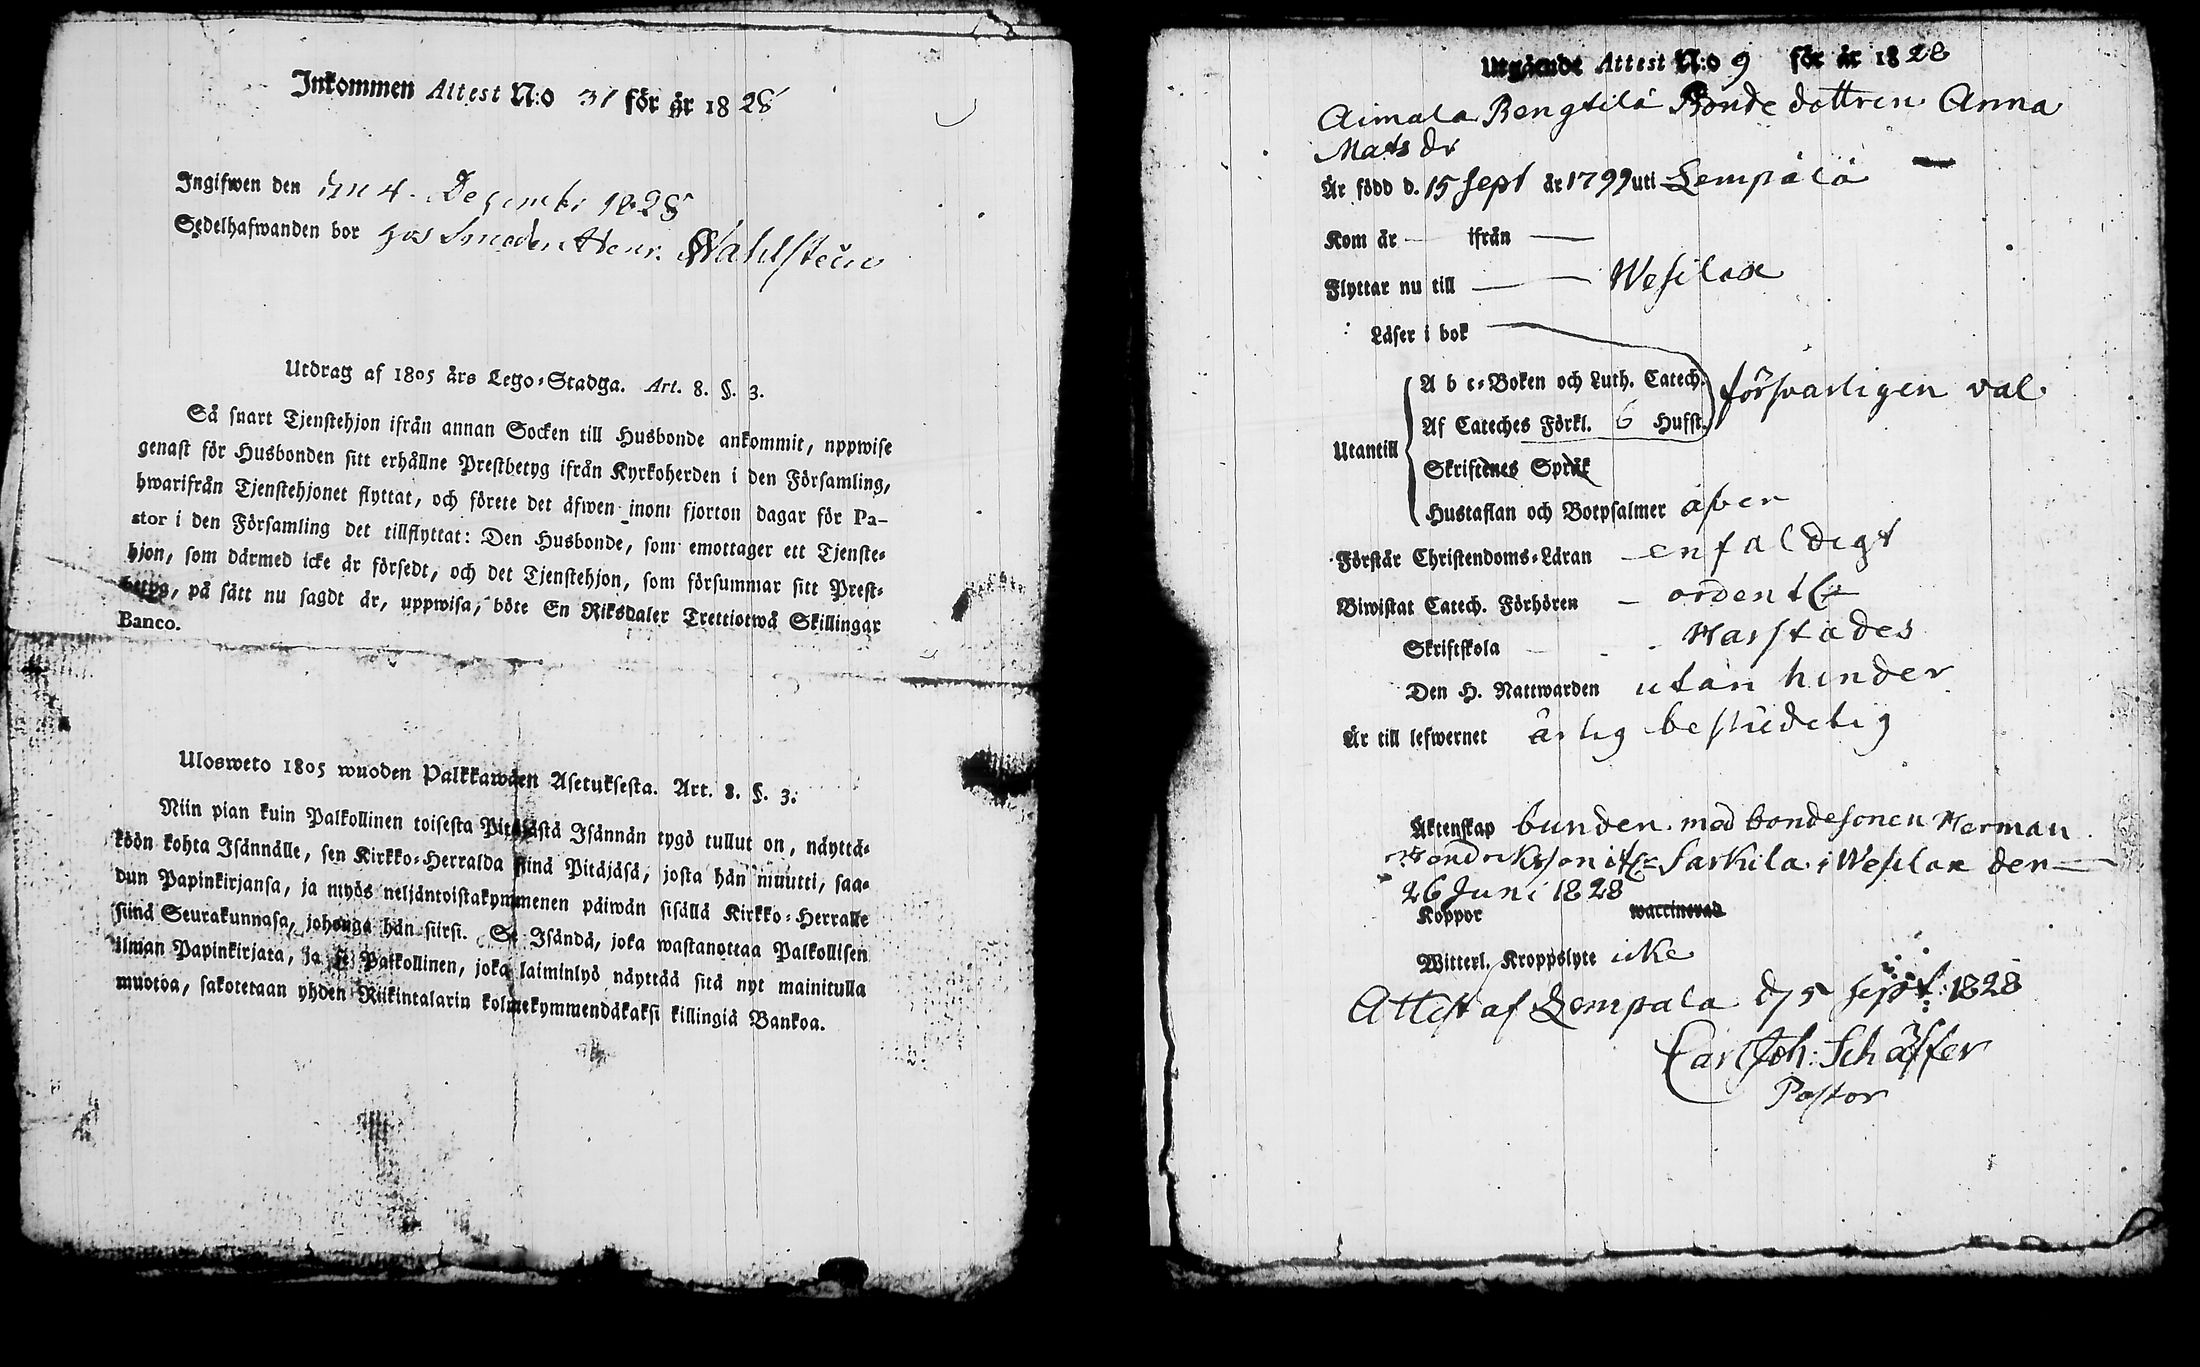 Inkommen Attest N:o 31 för år 1828
Ingifwen den den 4. Decemb: 1828
Sedelhafwanden bor hos Smeden Henr. Wahlsteen
Utdrag af 1805 års Lego-Stadga. Art. 8. §. 3.
Så snart Tjenstehjon ifrån annan Socken till Husbonde ankommit, nppwise
genast för Husbonden sitt erhållne Prestbetyg ifrån Kyrkoherden i den Församling,
hwarifrån Tjenstehjonet flyttat, och förete det äfwen inom fjorton dagar för Pa-
stor i den Församling det tillflyttat: Den Husbonde, som emottager ett Tjenste-
hjon, som därmed icke är försedt, och det Tjenstehjon, som försummar sitt Prest-
betyg, på sätt nu sagdt är, uppwisa, böte En Riksdaler Trettiotwå Skillingar
Banco.
Ulosweto 1805 wuoden Palkkawäen Asetuksesta. Art. 8. §. 3.
Niin pian kuin Palkollinen toisesta Pitäjästä Isännän tygö tullut on, näyttä-
köön kohta Isännälle, sen Kirkko-Herralda siinä Pitäjäsä, josta hän muutti, saa-
dun Papinkirjansa, ja myös neljäntoistakymmenen päiwän sisällä Kirkko-Herralle
siinä Seurakunnasa, johonga hän siirsi. Se Isändä, joka wastanottaa Palkollisen
ilman Papinkirjata, ja se Palkollinen, joka laiminlyö näyttää sitä nyt mainitulla
muotoa, sakotetaan yhden Riikintalarin kolmekymmendäkaksi killingiä Bankoa.
Utgående Attest N:o 9 för år 1828
Aimala Bengtilä Bonde dottren Anna
Mats dr
Är född d. 15 Sept år 1799 uti Lempälä
Kom år — ifrån —
Flyttar nu till — — Wesilax
Läser i bok
A b c-Boken och Luth. Catech. försvarligen val
Af Cateches Förkl. 6 Hufst.
Utantill
Skriftenes Språk
Hustaflan och Botpsalmer äfven
Förstår Christendoms-Läran enfaldigt
Biwistat Catech. Förhören — ordentl
Skriftskola Harstädes
Den H. Nattwarden utan hinder
Är till lefwernet ärlig beskiedelig
Äktenskap bunden med bondesonen Herman
Hendriksson ifr Sarkila i Wesilax den —
26 Juni 1828
Koppor waccinerad
Witterl. Kroppslyte icke
Attest af Lempala d 5 Sept: 1828
Carl Joh: Schäffer
Pastor